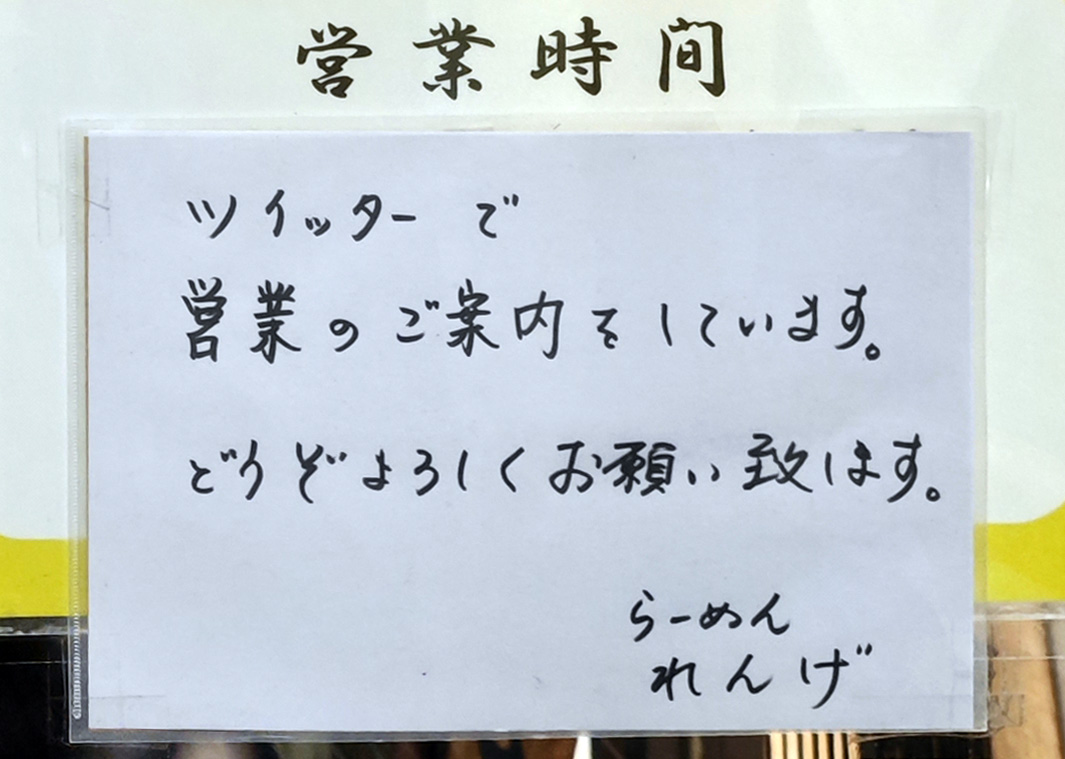 営業時間
ツイッターで
営業のご案内をしています。
どうぞよろしくお願い致します。
らーめん
れんげ